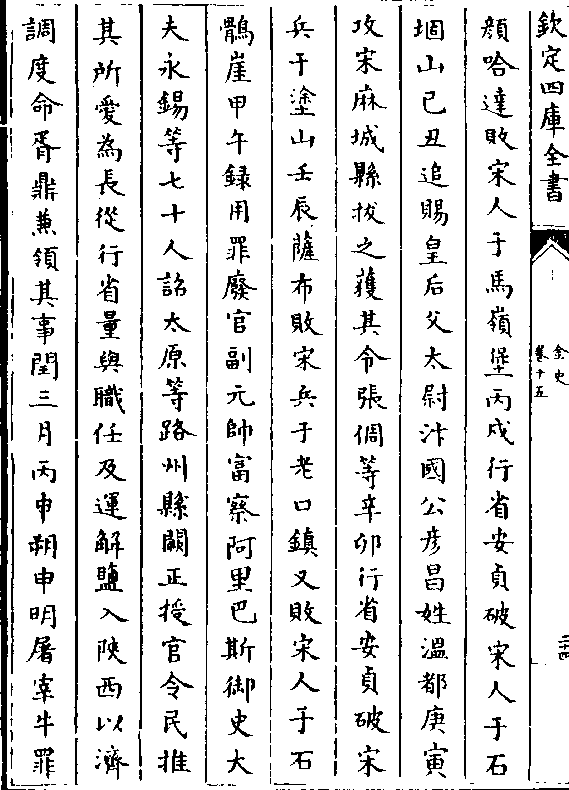 欽定四庫全書
金史
卷十五
二十四
顔哈達敗宋人于馬嶺堡丙戌行省安貞破宋人于石
堌山己丑追賜皇后父太尉汴國公彦昌姓溫都庚寅
攻宋麻城縣拔之獲其令張倜等辛卯行省安貞破宋
兵于塗山壬辰薩布敗宋兵于老口鎮又敗宋人于石
鶻崖甲午録用罪廢官副元帥富察阿里巴斯御史大
夫永錫等七十人詔太原等路州縣闕正授官令民推
其所愛為長從行省量與職任及運解鹽入陝西以濟
調度命胥鼎兼領其事閏三月丙申朔申明屠宰牛罪